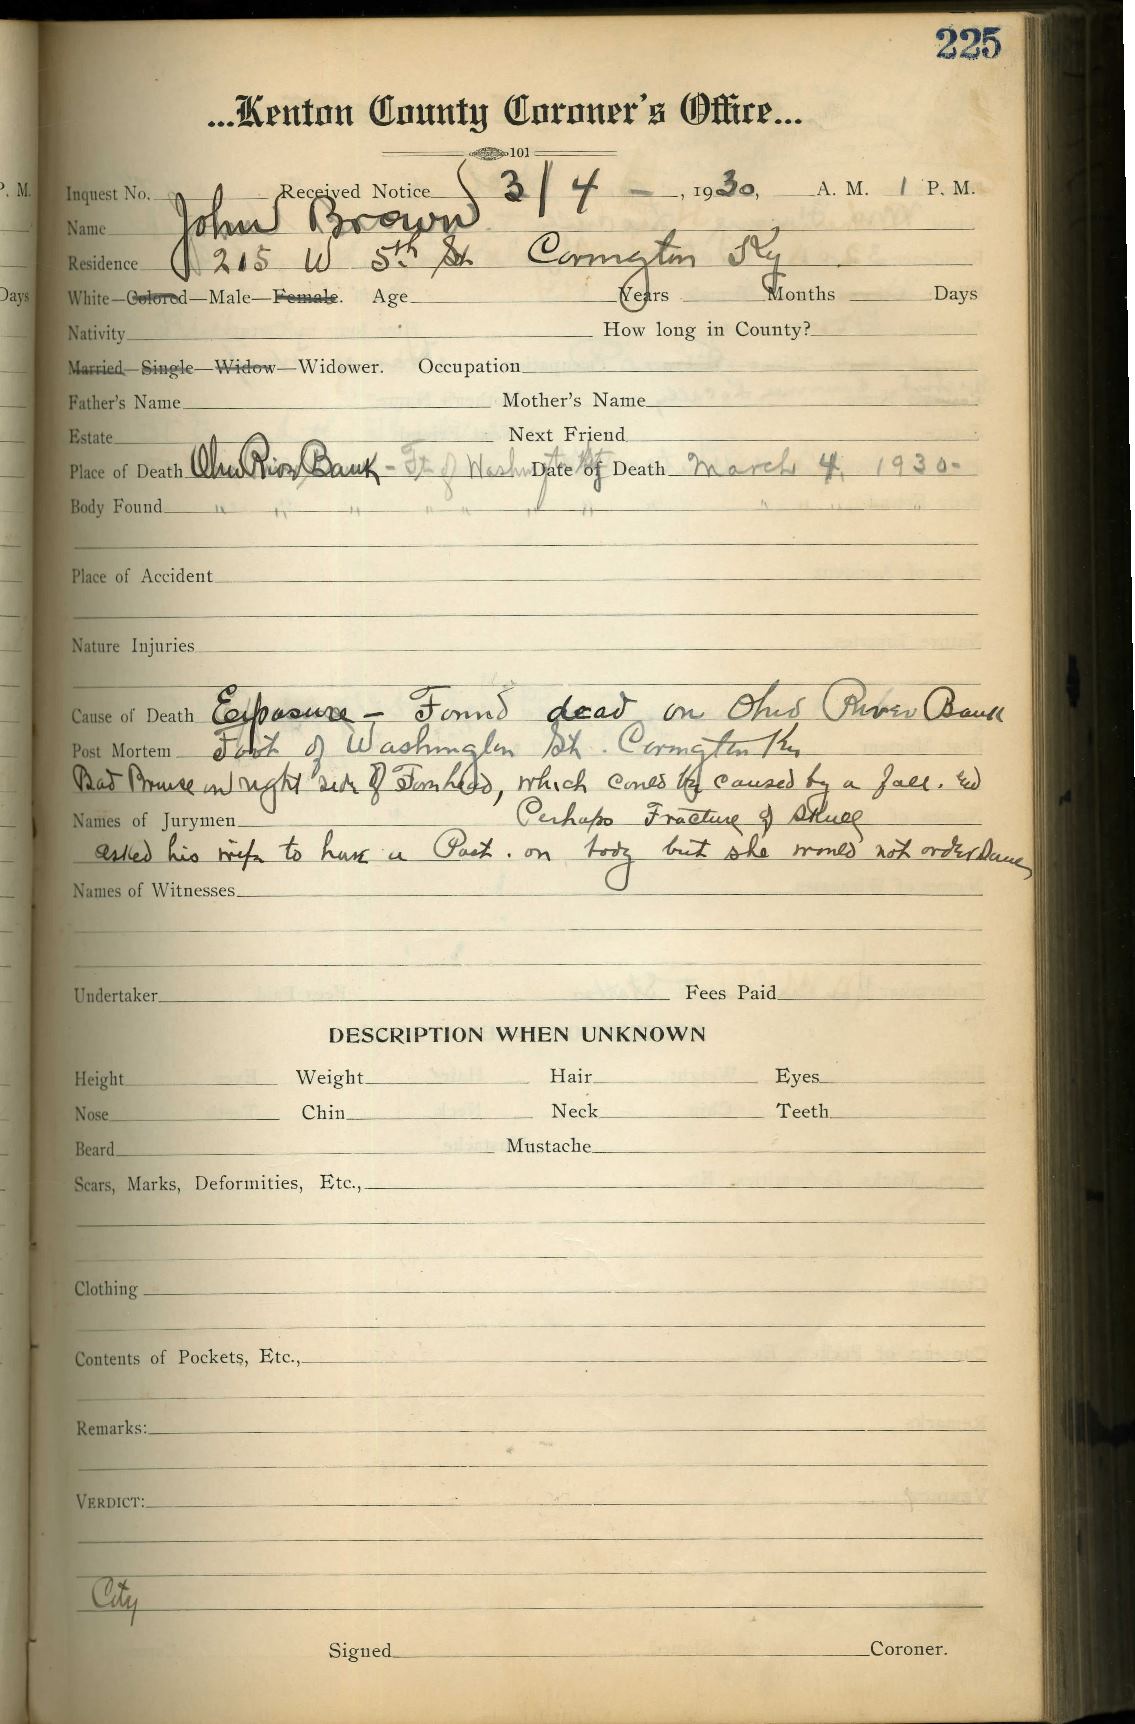 225
...Kenton County Coroner's Office...
101
P. M. Inquest No. Received Notice 3/4 - , 1930, A. M. 1 P. M.
Name John Brown
Residence 215 W 5th St Covington Ky
Days White—Colored—Male—Female. Age Years Months Days
Nativity How long in County?
Married—Single—Widow—Widower. Occupation
Father's Name Mother's Name
Estate Next Friend
Place of Death Ohio River Bank - Ft of Washington St Date of Death March 4, 1930-
Body Found " " " " " " " " "
Place of Accident
Nature Injuries
Cause of Death Exposure - Found dead on Ohio River Bank
Post Mortem Foot of Washington St. Covington Ky
Bad Bruise on right side of Forehead, which could be caused by a fall.
Names of Jurymen Perhaps Fracture of Skull
asked his wife to have a Post. on body but she would not order same
Names of Witnesses
Undertaker Fees Paid
DESCRIPTION WHEN UNKNOWN
Height Weight Hair Eyes
Nose Chin Neck Teeth
Beard Mustache
Scars, Marks, Deformities, Etc.,
Clothing
Contents of Pockets, Etc.,
Remarks:
VERDICT:
City
Signed Coroner.